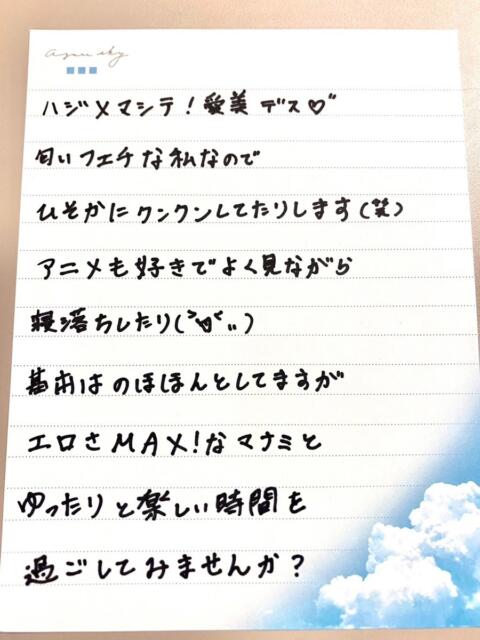 ハジメマシテ！愛美デス♡゛
匂いフェチな私なので
ひそかにクンクンしてたりします(笑)
アニメも好きでよく見ながら
寝落ちしたり(>∀<;;)
基本はのほほんとしてますが
エロさMAX!なマナミと
ゆったりと楽しい時間を
過ごしてみませんか？